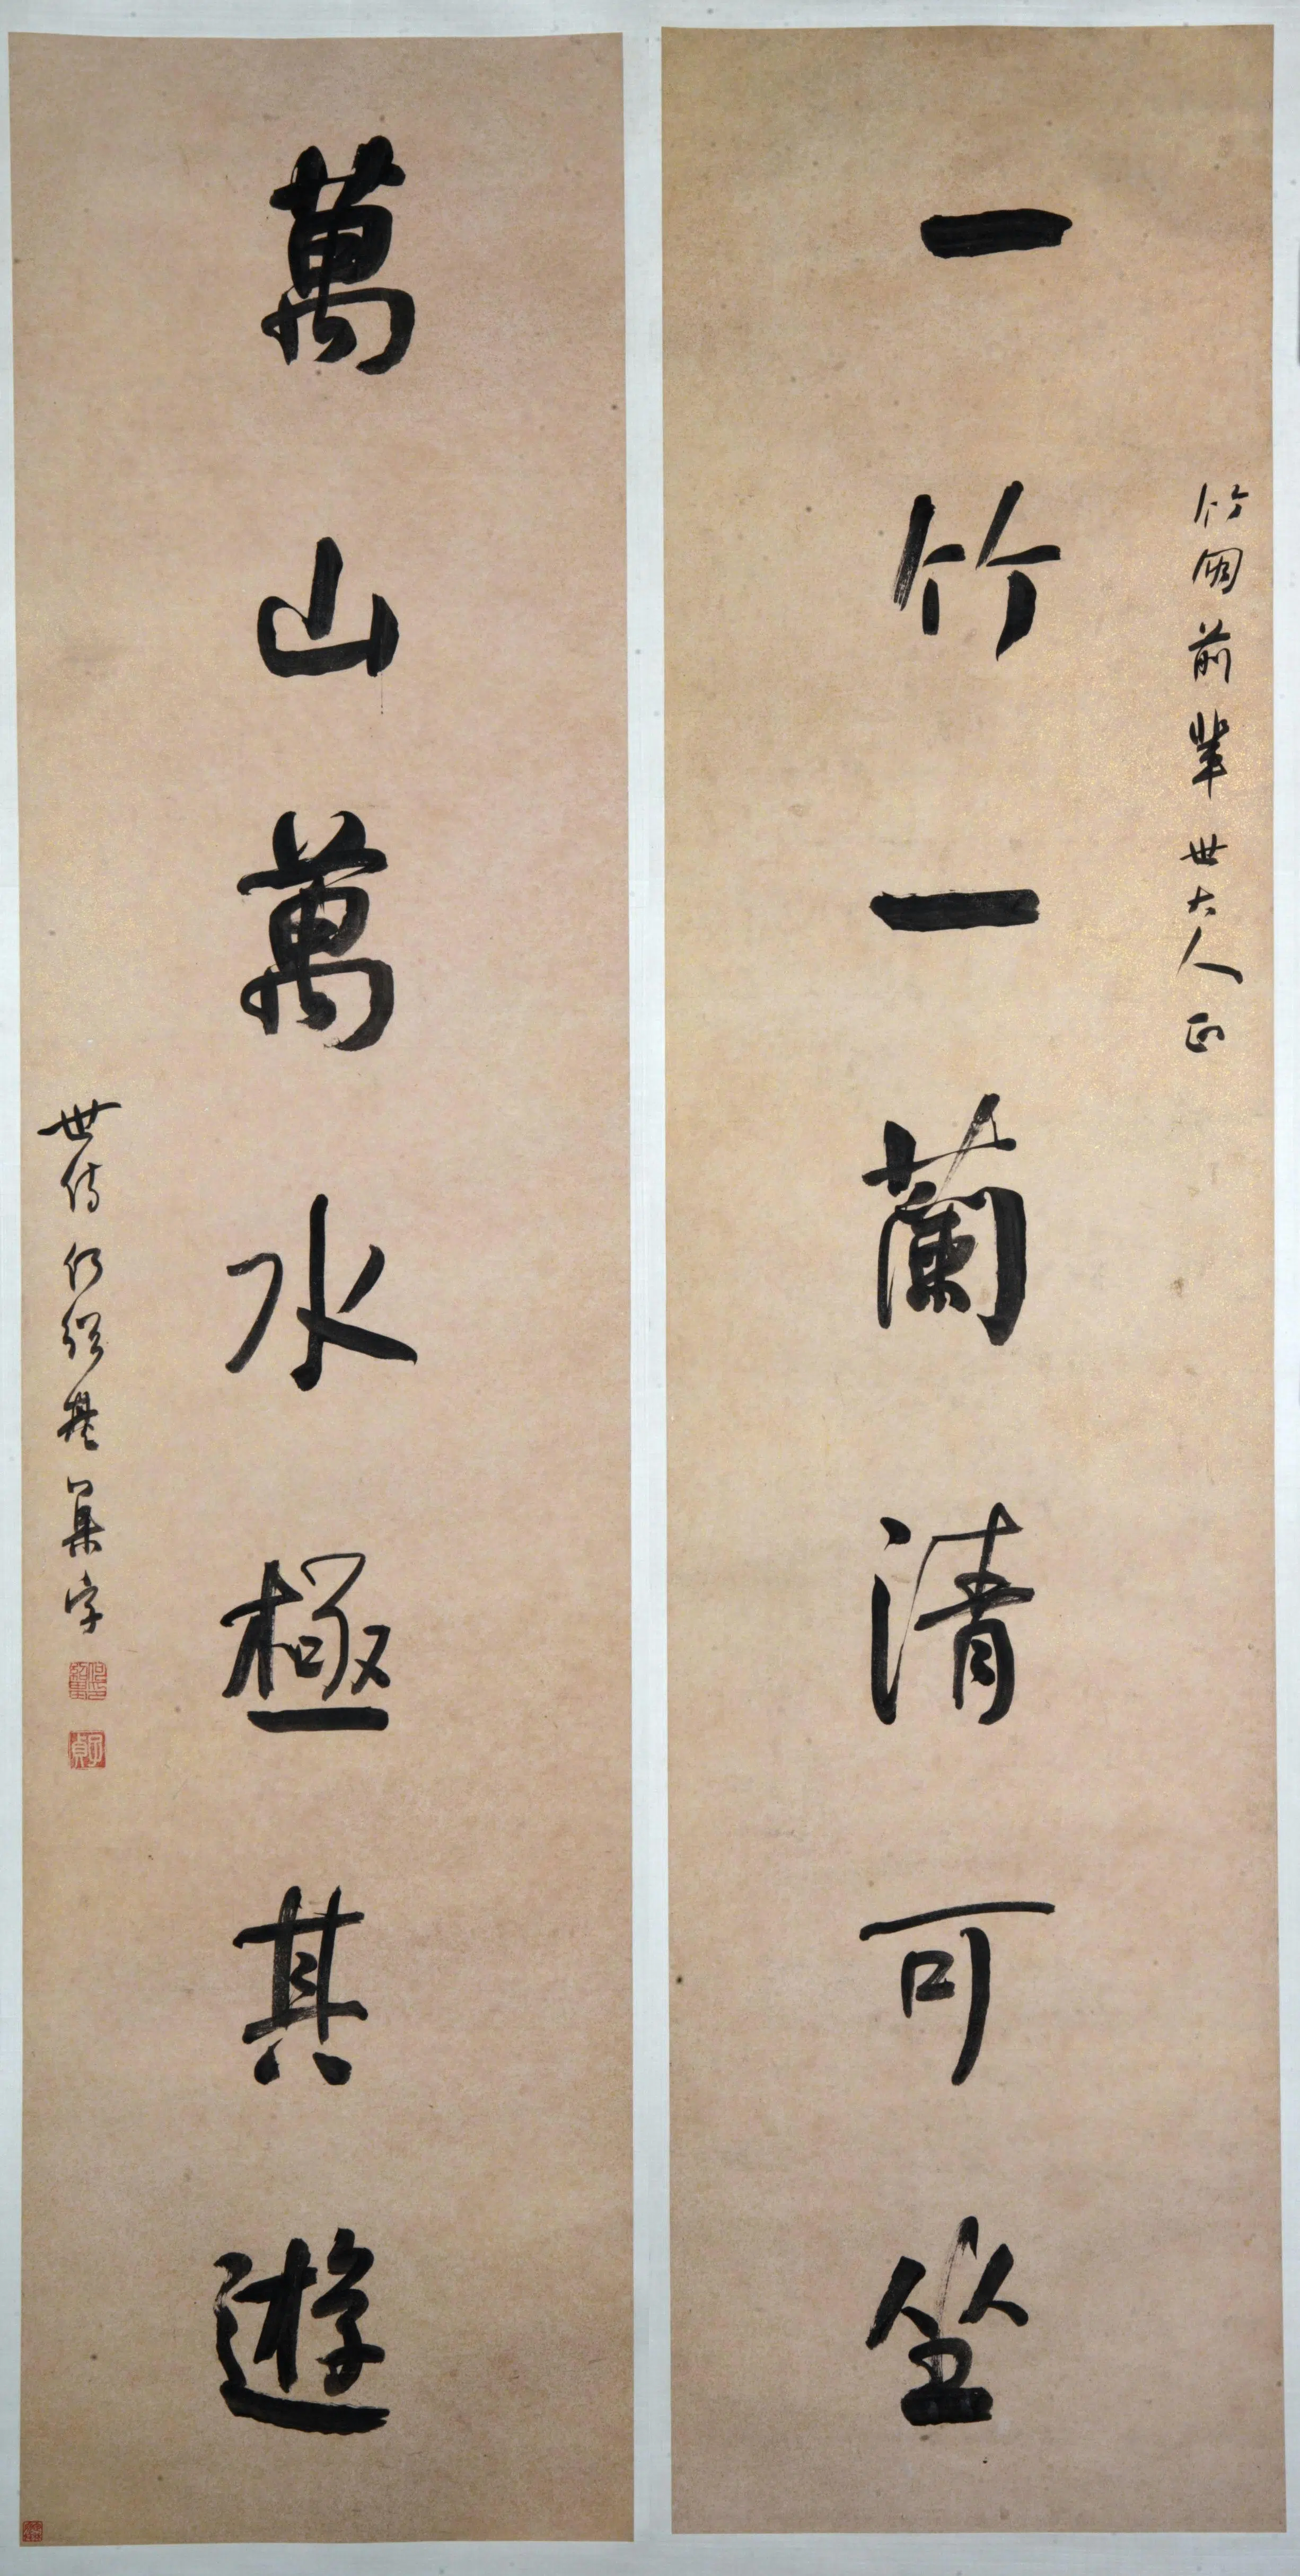 竹朋前輩世大人正
一竹一蘭清可坐
萬山萬水極其遊
世侍何紹基集字
子貞